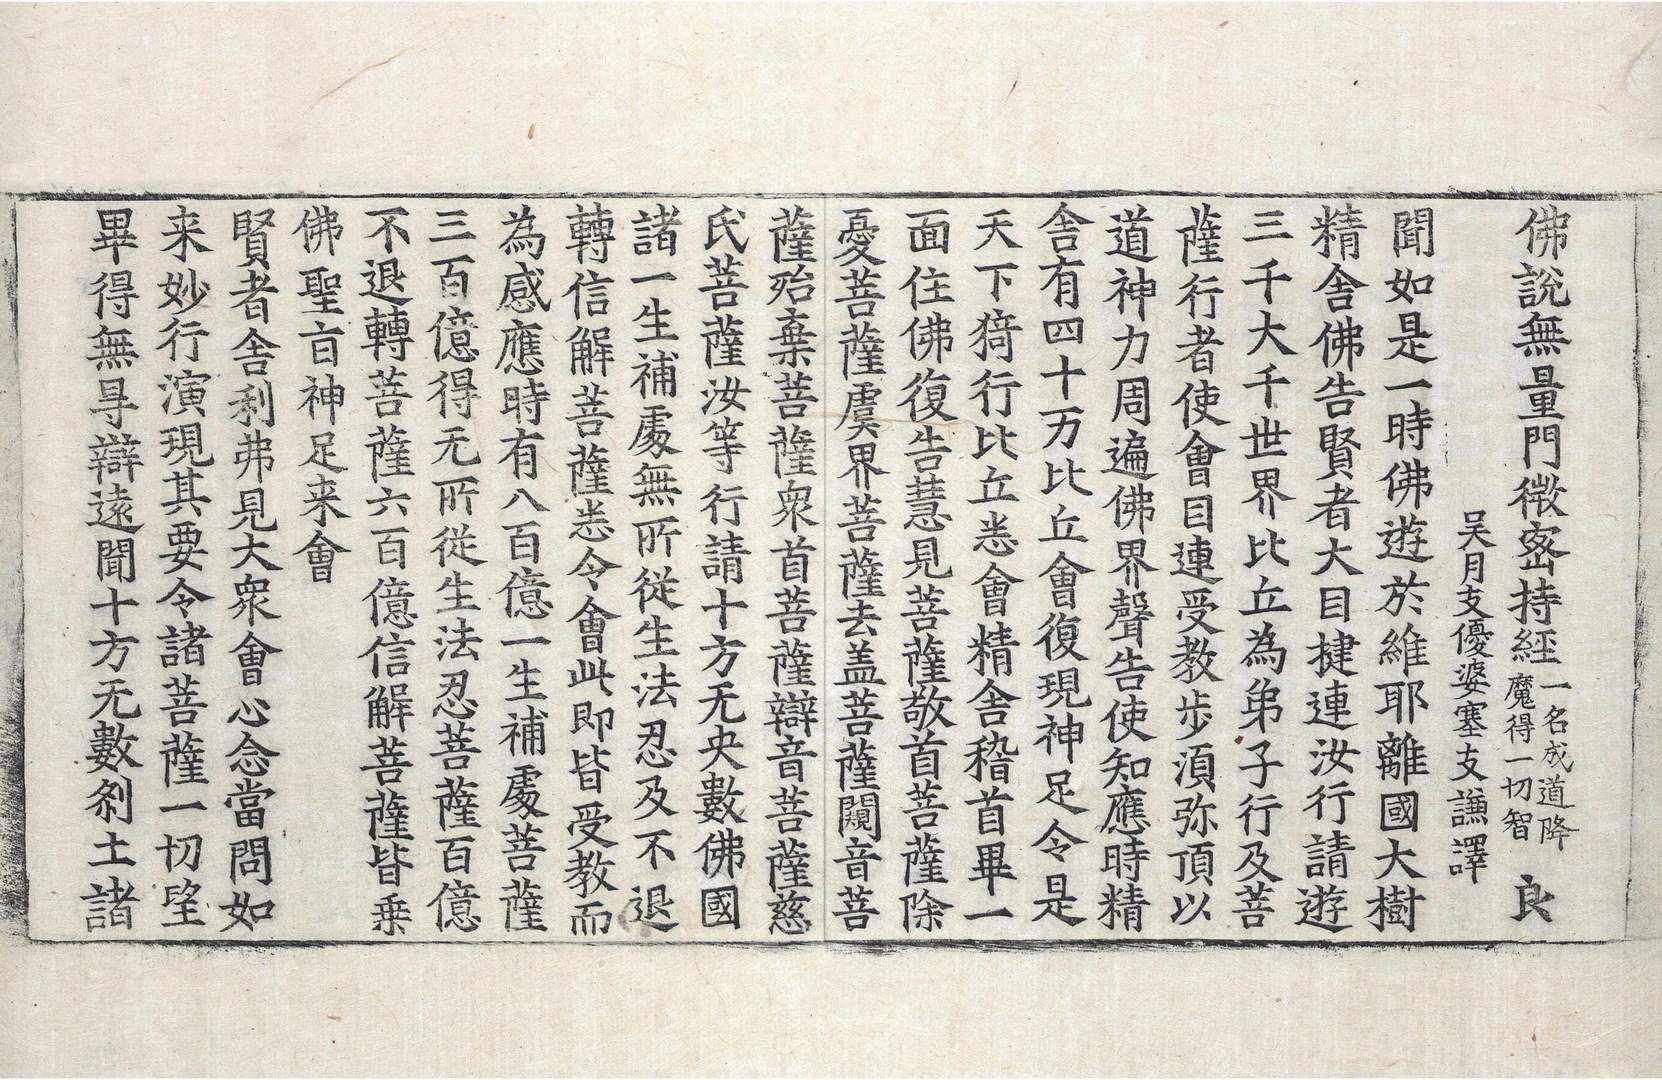 佛說無量門微密持經一名成道降魔得一切智 良
吳月支優婆塞支謙譯
聞如是一時佛遊於維耶離國大樹
精舍佛告賢者大目揵連汝行請遊
三千大千世界比丘為弟子行及菩
薩行者使會目連受教步湏弥頂以
道神力周遍佛界聲告使知應時精
舎有四十万比丘會復現神足令是
天下猗行比丘悉會精舍稽首畢一
面住佛復告慧見菩薩敬首菩薩除
憂菩薩虞界菩薩去盖菩薩闚音菩
薩殆棄菩薩衆首菩薩辯音菩薩慈
氏菩薩汝等行請十方无央數佛國
諸一生補處無所從生法忍及不退
轉信解菩薩悉令會此即皆受教而
為感應時有八百億一生補處菩薩
三百億得无所從生法忍菩薩百億
不退轉菩薩六百億信解菩薩皆乗
佛聖㫖神足来會
賢者舍利弗見大衆會心念當問如
来妙行演現其要令諸菩薩一切望
畢得無㝵辯遠聞十方无數剎土諸